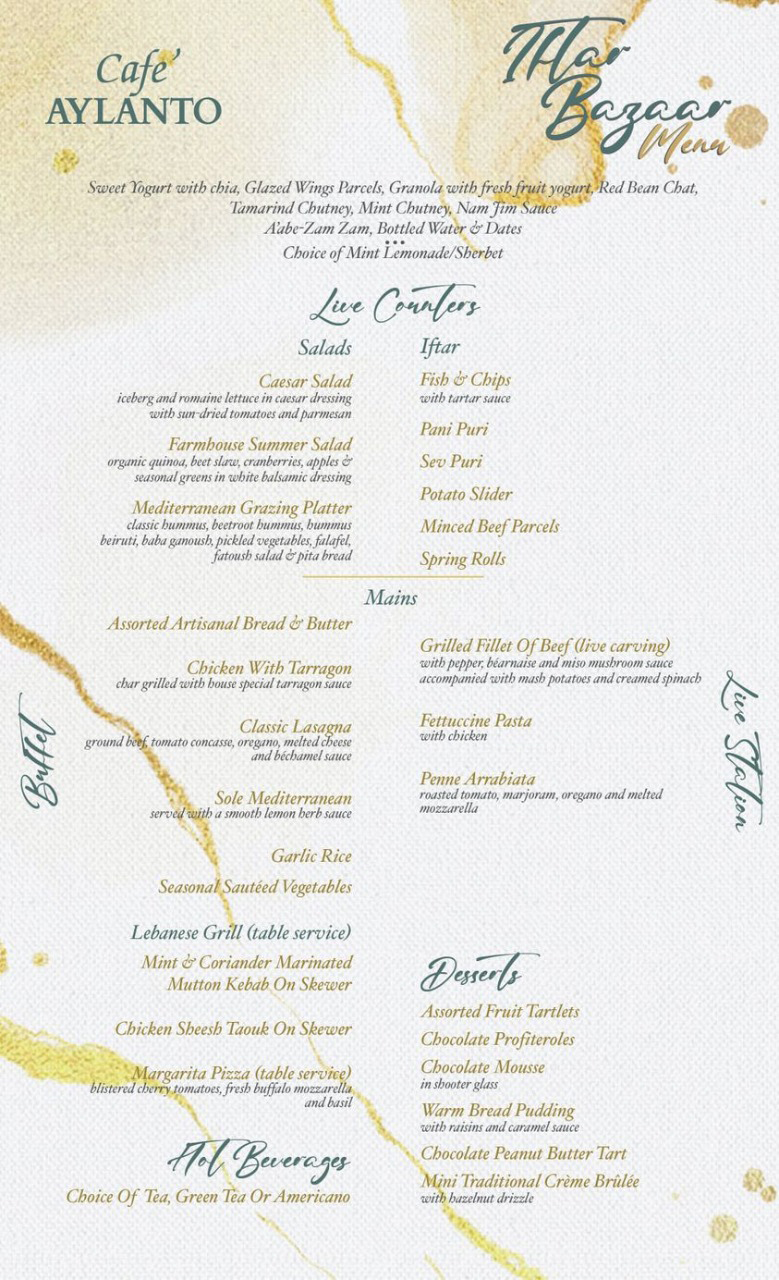 Cafe'
AYLANTO
Iftar
Bazaar
Menu
Sweet Yogurt with chia, Glazed Wings Parcels, Granola with fresh fruit yogurt, Red Bean Chat,
Tamarind Chutney, Mint Chutney, Nam Jim Sauce
A'abe-Zam Zam, Bottled Water & Dates
•••
Choice of Mint Lemonade/Sherbet
Live Counters
Salads
Caesar Salad
iceberg and romaine lettuce in caesar dressing
with sun-dried tomatoes and parmesan
Farmhouse Summer Salad
organic quinoa, beet slaw, cranberries, apples &
seasonal greens in white balsamic dressing
Mediterranean Grazing Platter
classic hummus, beetroot hummus, hummus
beiruti, baba ganoush, pickled vegetables, falafel,
fatoush salad & pita bread
Iftar
Fish & Chips
with tartar sauce
Pani Puri
Sev Puri
Potato Slider
Minced Beef Parcels
Spring Rolls
Mains
Buffet
Assorted Artisanal Bread & Butter
Chicken With Tarragon
char grilled with house special tarragon sauce
Classic Lasagna
ground beef, tomato concasse, oregano, melted cheese
and béchamel sauce
Sole Mediterranean
served with a smooth lemon herb sauce
Garlic Rice
Seasonal Sautéed Vegetables
Lebanese Grill (table service)
Mint & Coriander Marinated
Mutton Kebab On Skewer
Chicken Sheesh Taouk On Skewer
Margarita Pizza (table service)
blistered cherry tomatoes, fresh buffalo mozzarella
and basil
Live Station
Grilled Fillet Of Beef (live carving)
with pepper, béarnaise and miso mushroom sauce
accompanied with mash potatoes and creamed spinach
Fettuccine Pasta
with chicken
Penne Arrabiata
roasted tomato, marjoram, oregano and melted
mozzarella
Hot Beverages
Choice Of Tea, Green Tea Or Americano
Desserts
Assorted Fruit Tartlets
Chocolate Profiteroles
Chocolate Mousse
in shooter glass
Warm Bread Pudding
with raisins and caramel sauce
Chocolate Peanut Butter Tart
Mini Traditional Crème Brûlée
with hazelnut drizzle